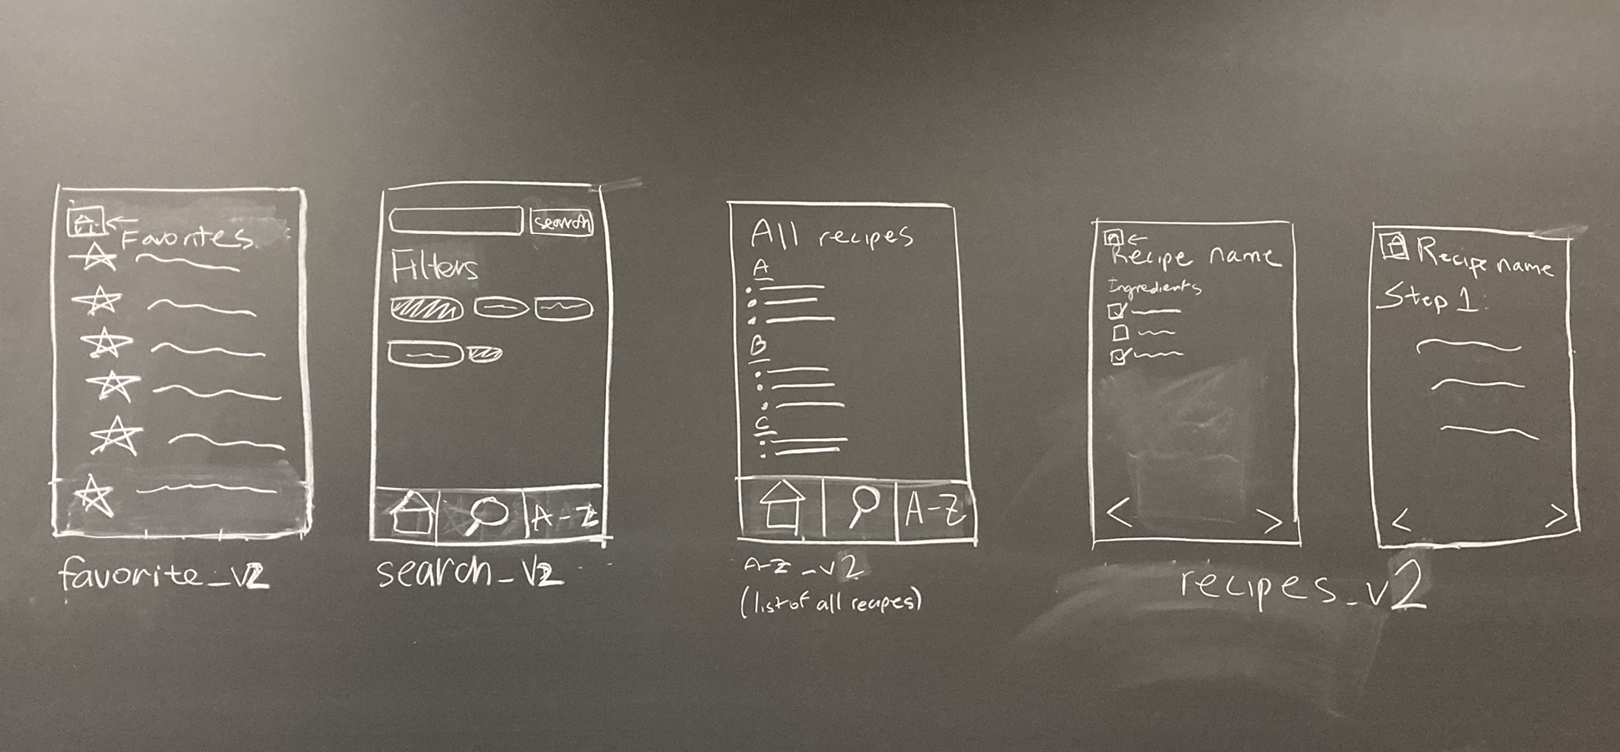 Favorites
favorite_v2
search
Filters
A-Z
search_v2
All recipes
A
B
C
A-Z
A-Z_v2
(list of all recipes)
Recipe name
Ingredients
< >
Recipe name
Step 1:
< >
recipes_v2